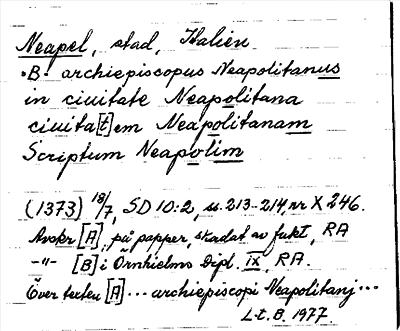 Neapel, stad, Italien
"B" archiepiscopus Neapolitanus
in ciuitate Neapolitana
ciuita[t]em Neapolitanam
Scriptum Neapolim
(1373) 18/7, SD 10:2, s. 213-214, nr X 246.
Avskr [A], på papper, skadat av fukt, RA
-"- [B] i Örnhielms Dipl. IX, RA.
Över texten [A] ... archiepiscopi Neapolitanj ...
L.t.B. 1977.